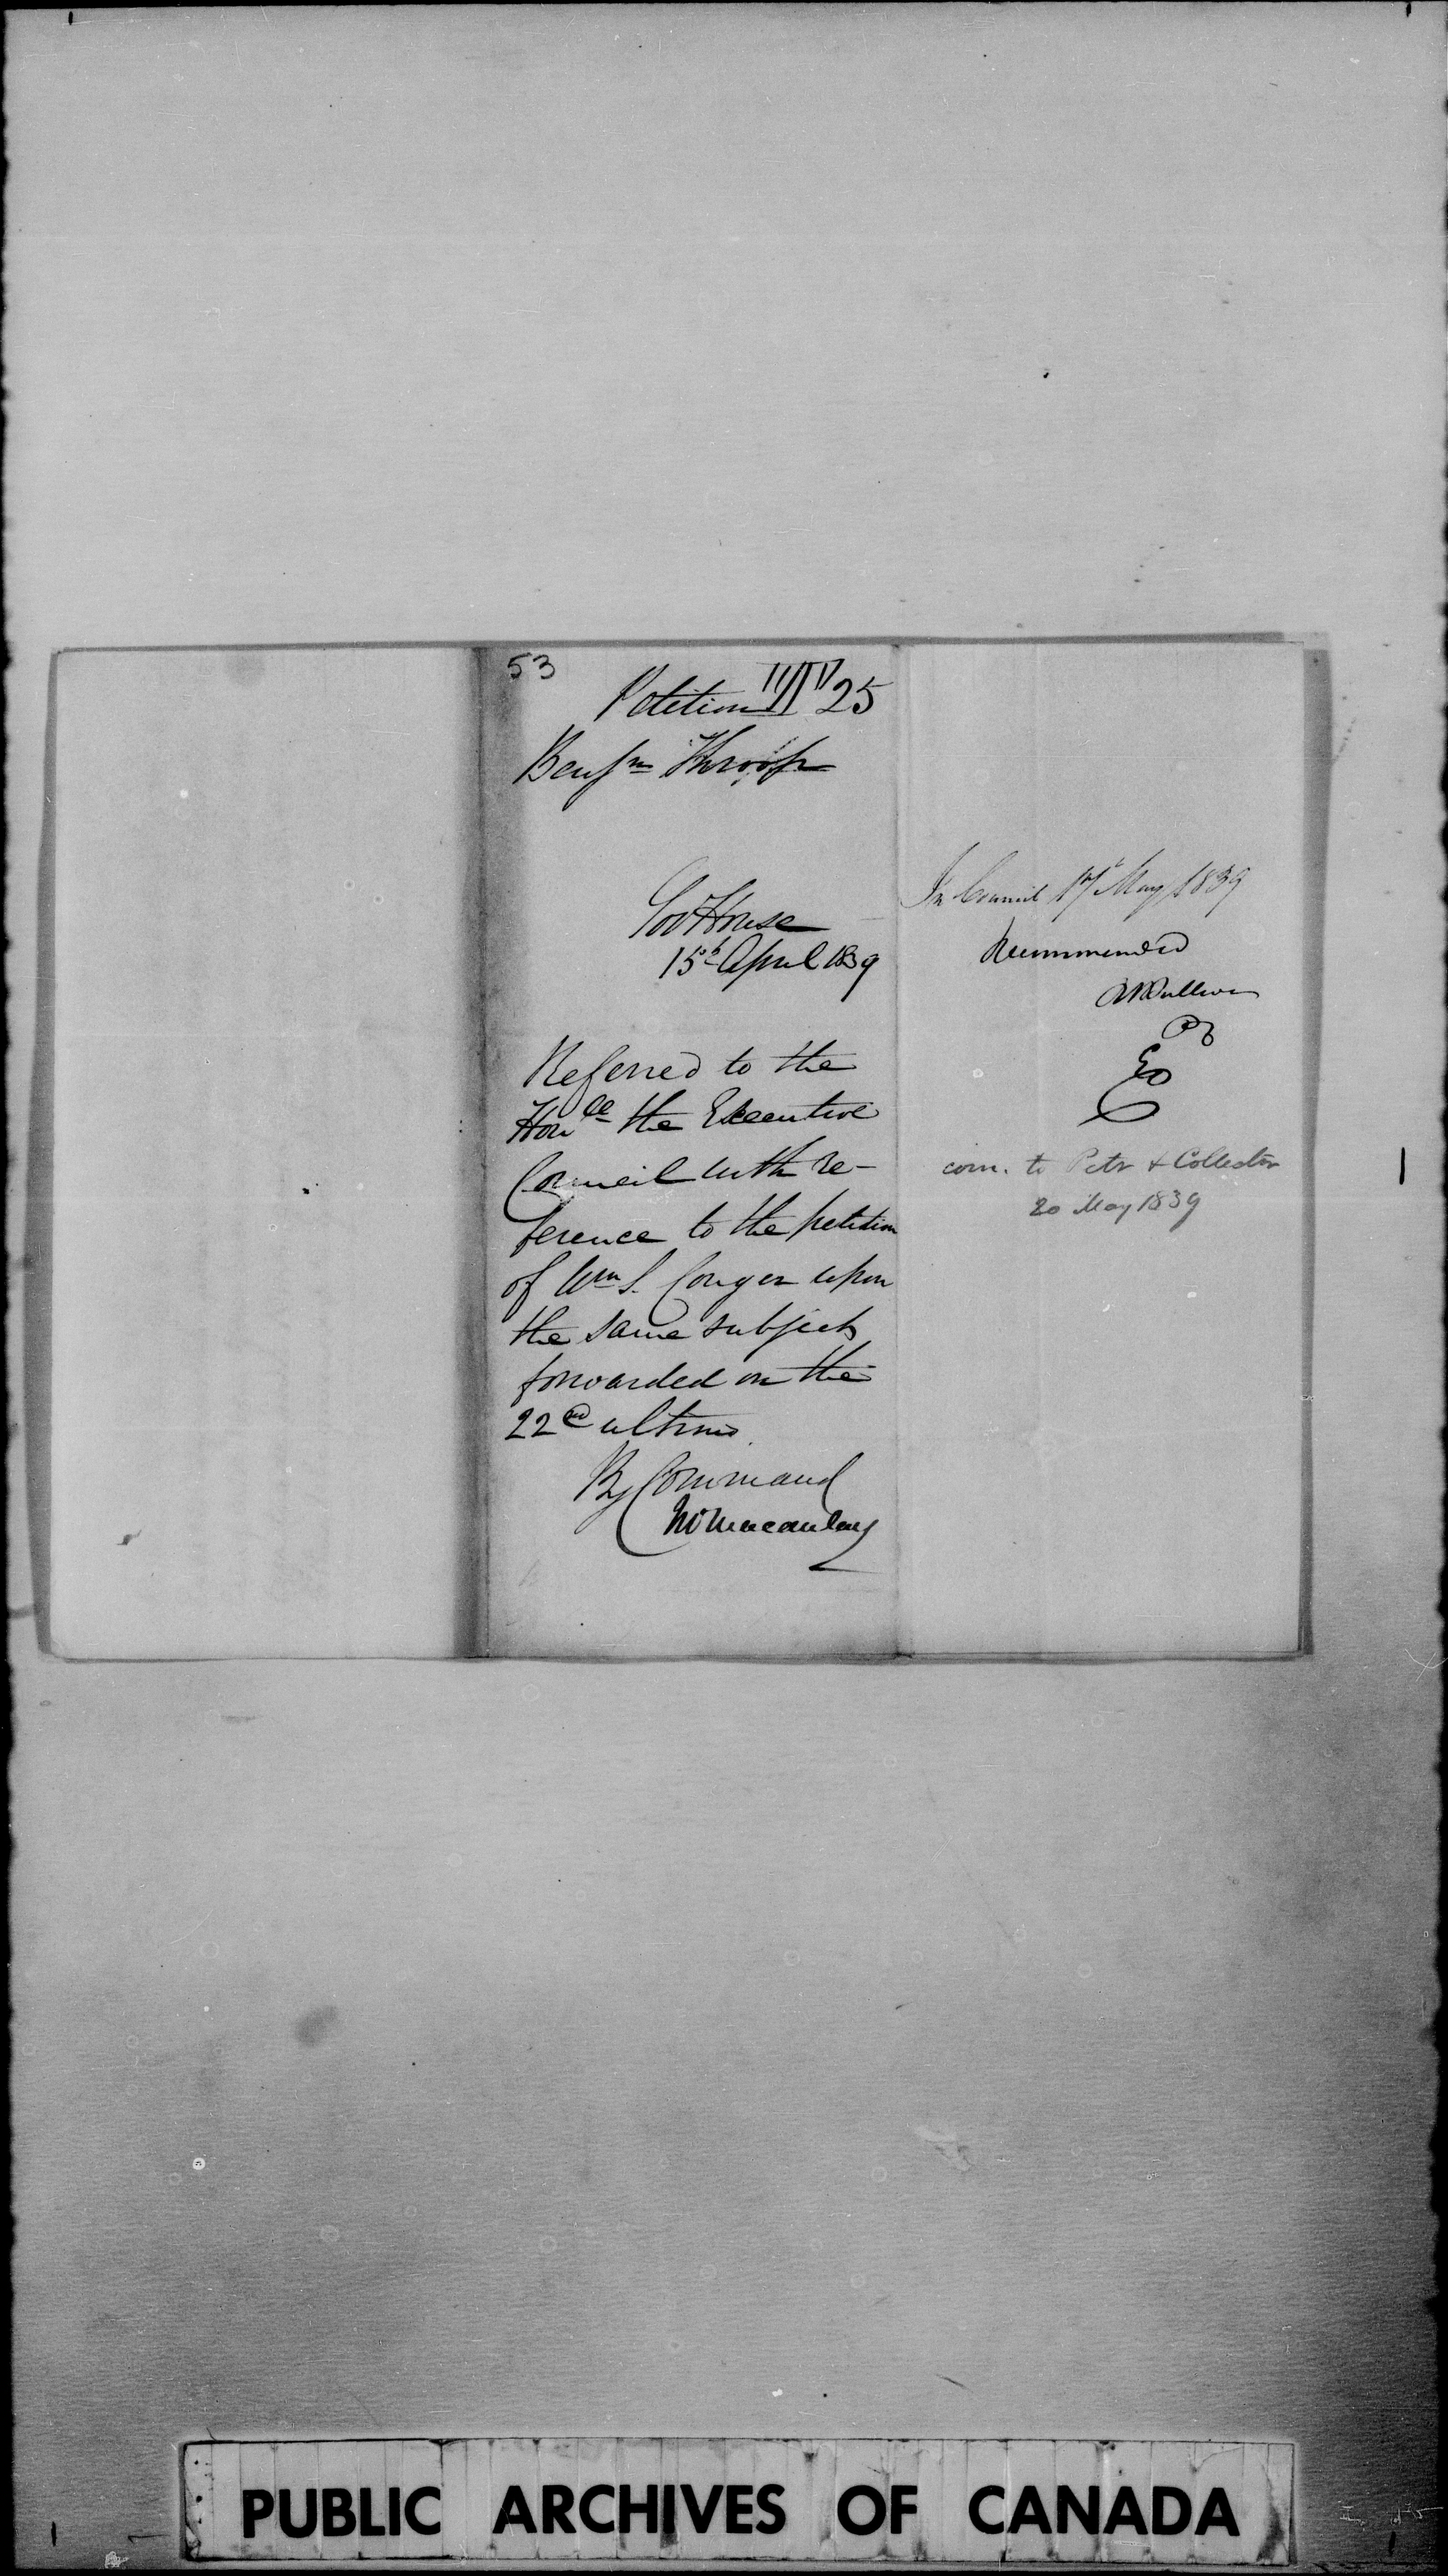 53
Petition 25
Benjn Throop
Gov House
15th April 1839
Referred to the
Honble the Executive
Council with re-
ference to the petition
of Wm S. Conger upon
the same subject
forwarded on the
22nd ultimo.
By Command
Macaulay
In Council 17 May 1839
Recommended
RBSullivan
com. to Petr & Collector
20 May 1839
PUBLIC ARCHIVES OF CANADA